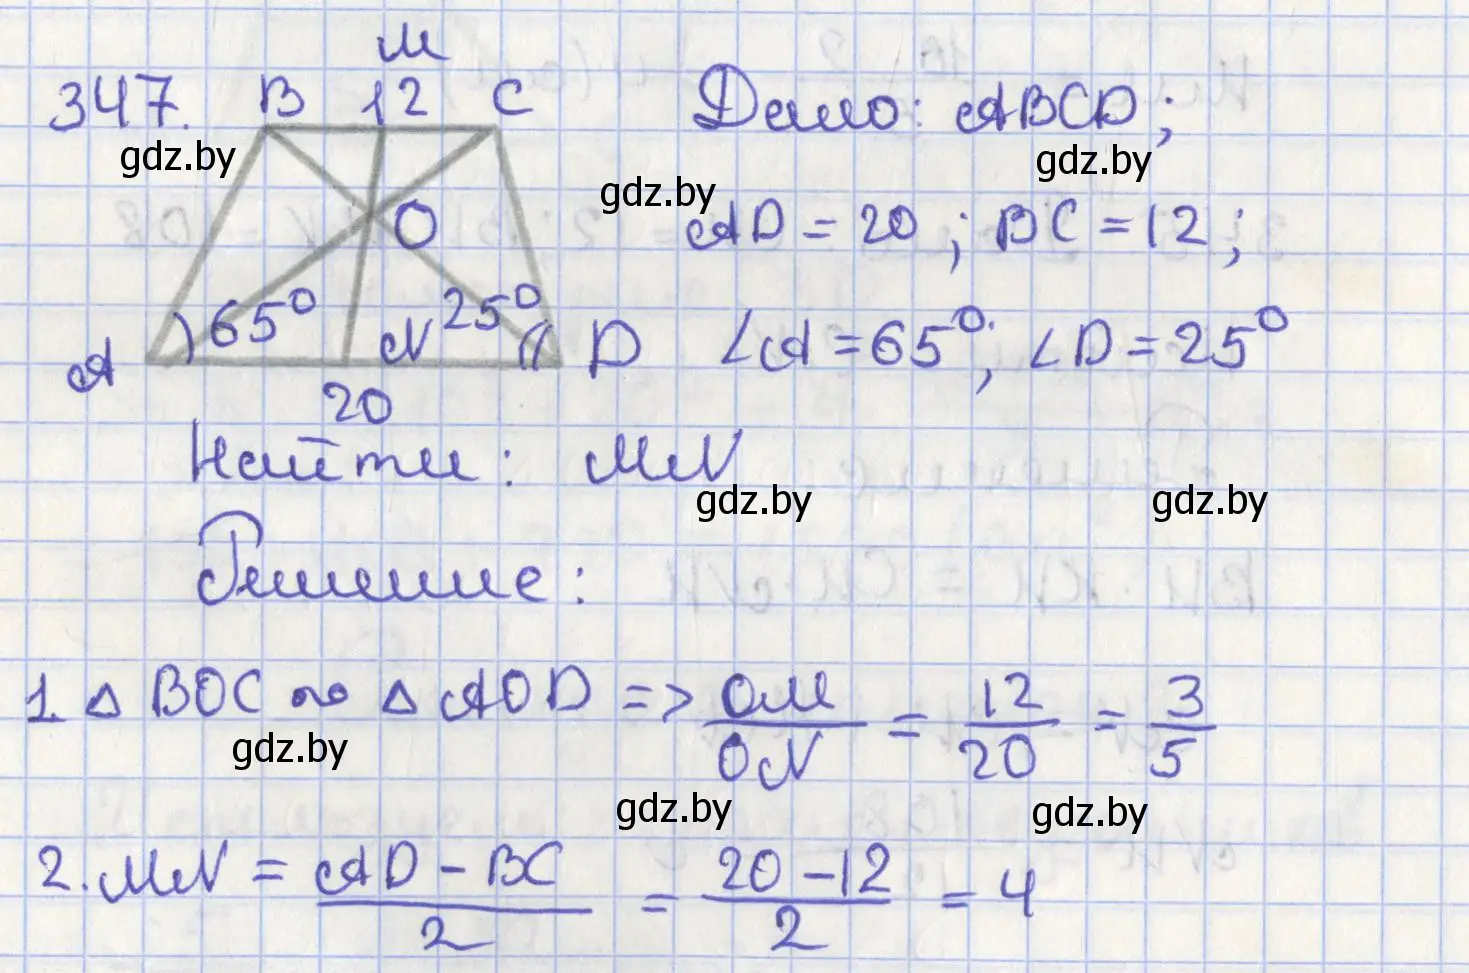 М
347. B 12 C Дано: ABCD;
gdz.by gdz.by
gdz.by
O AD = 20; BC = 12;
65° N 25° D ∠A = 65°; ∠D = 25°
A
20
Найти: MN
gdz.by gdz.by
Решение:
1. △ BOC ∾ △ AOD => OM/ON = 12/20 = 3/5
gdz.by
gdz.by gdz.by
2. MN = (AD - BC)/2 = (20 - 12)/2 = 4